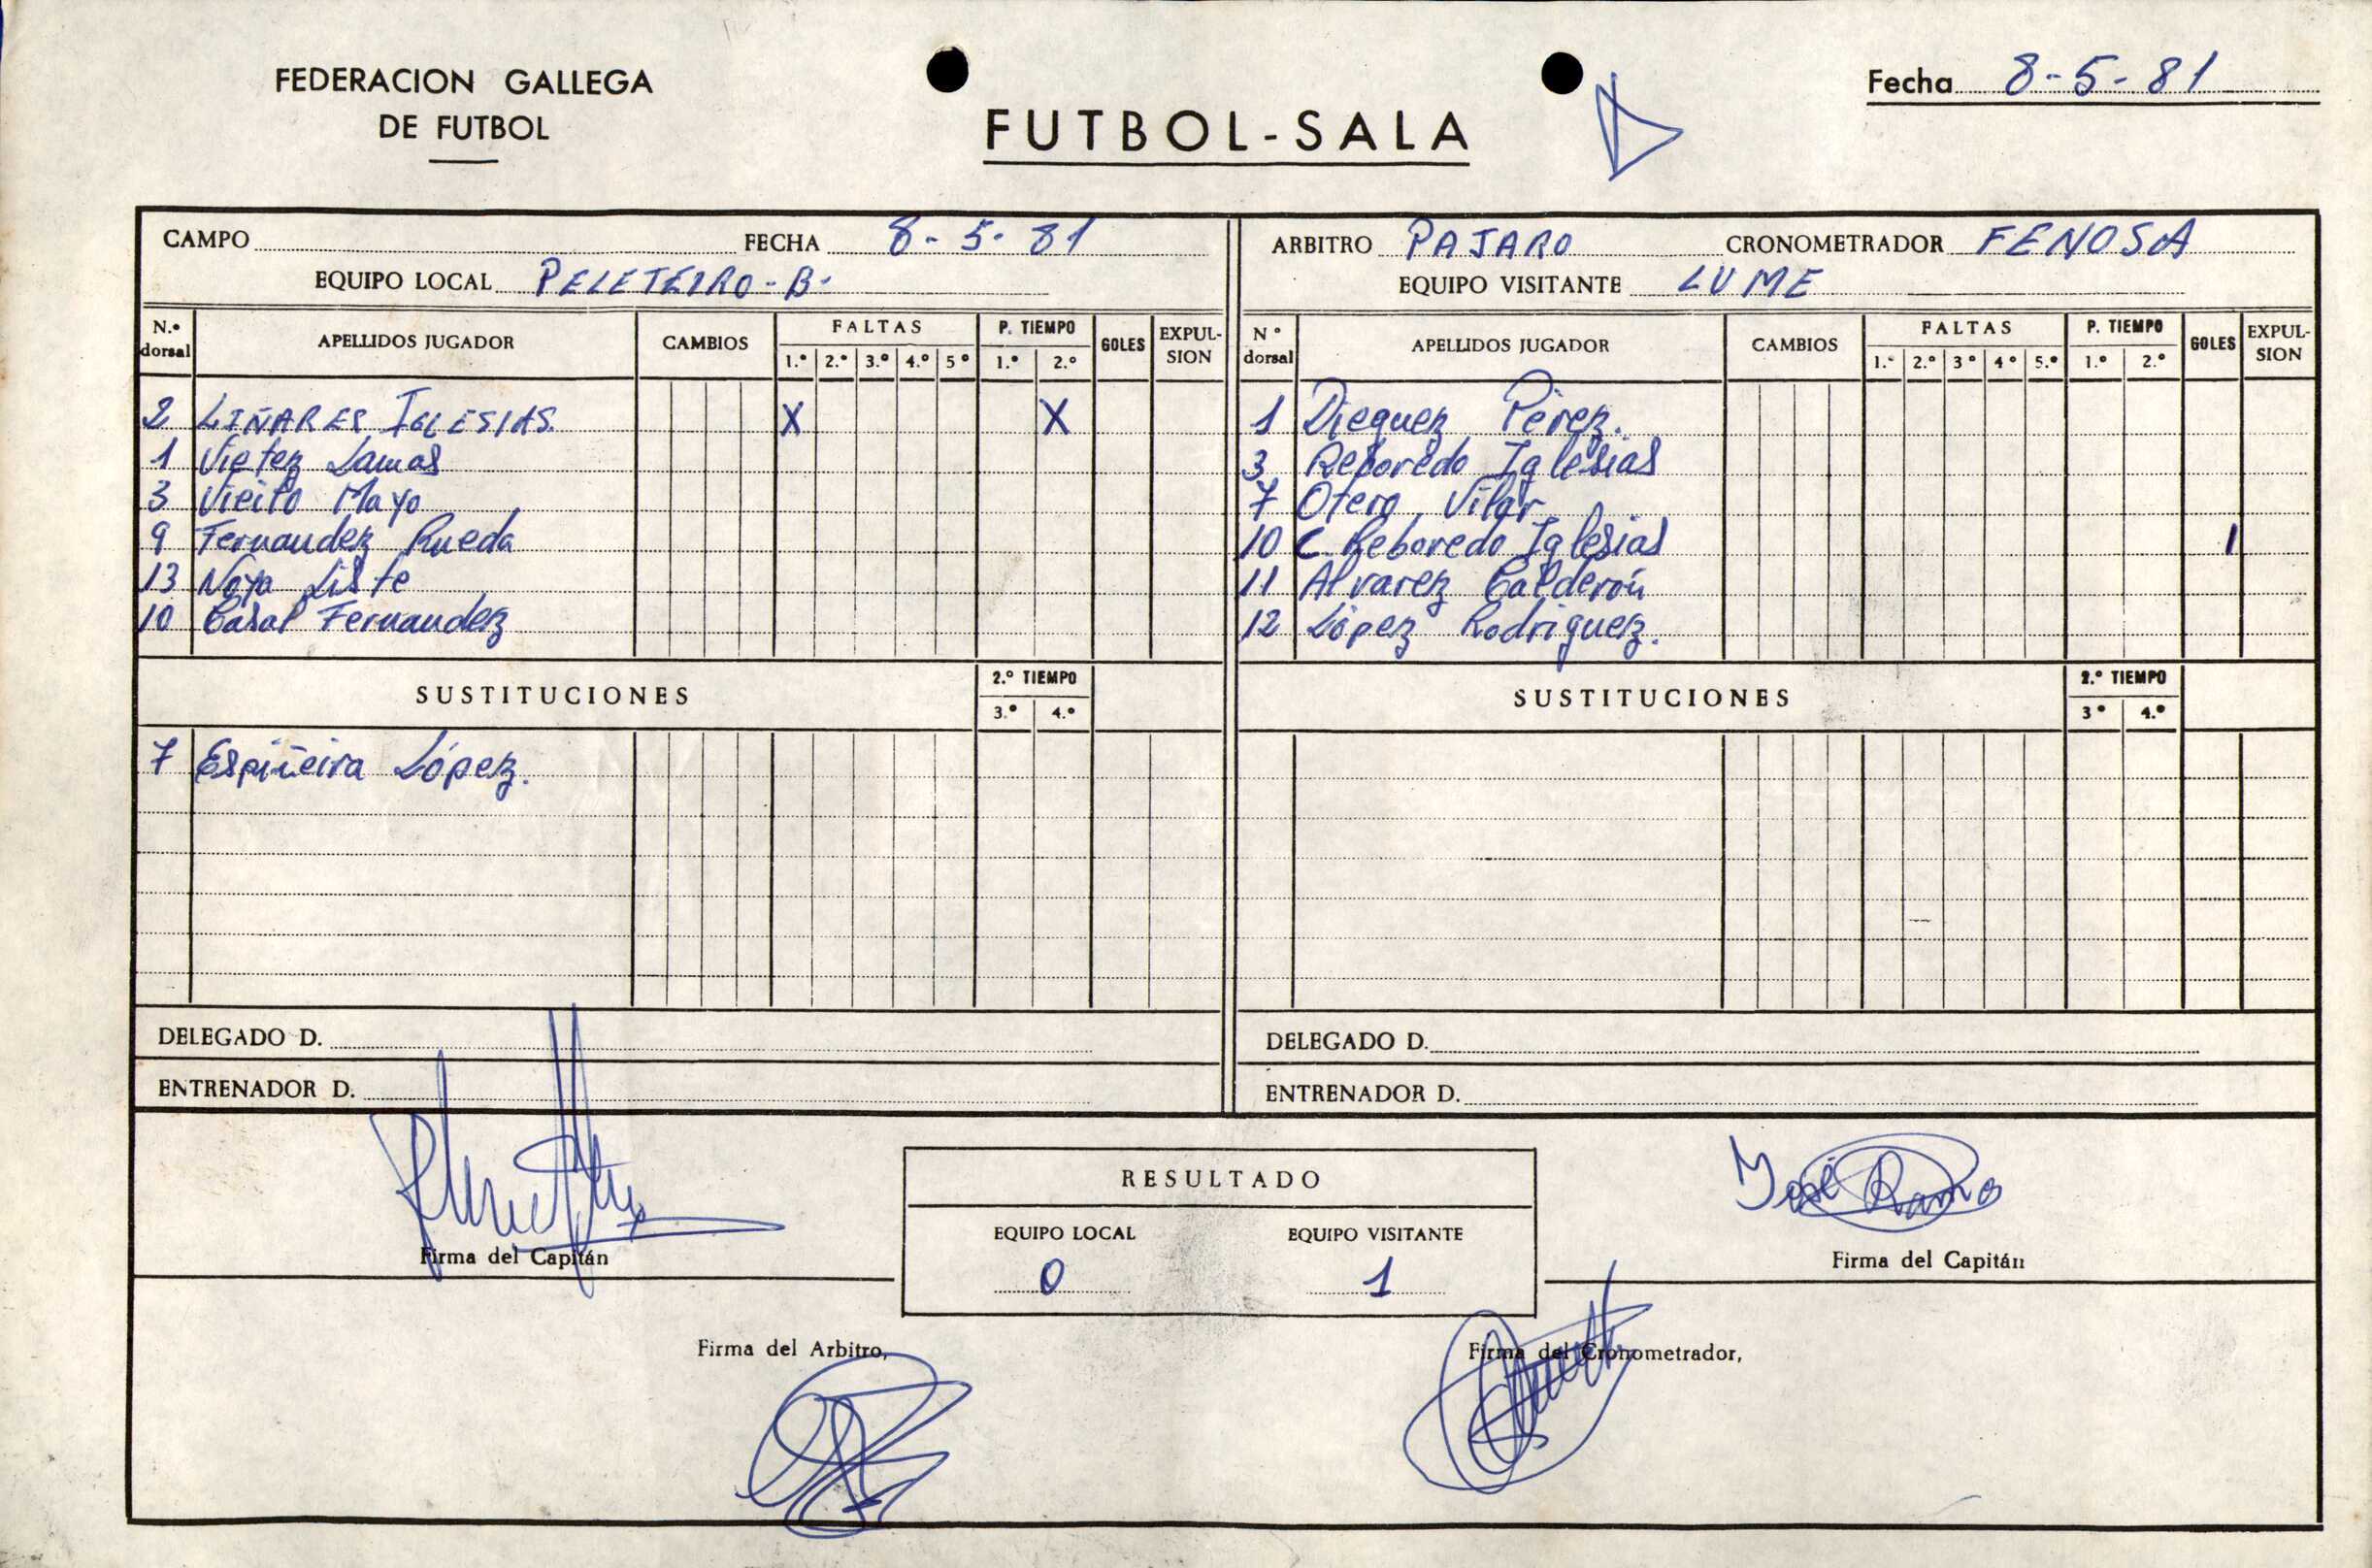 FEDERACION GALLEGA
DE FUTBOL
FUTBOL-SALA
Fecha 8-5-81
CAMPO FECHA 8-5-81
EQUIPO LOCAL PELETEIRO-B-
N.º dorsal APELLIDOS JUGADOR CAMBIOS FALTAS 1.º 2.º 3.º 4.º 5º P. TIEMPO 1.º 2.º GOLES EXPULSION
2 LIÑARES IGLESIAS. X X
1 Vietez Lamas
3 Vieito Mayo
9 Fernandez Rueda
13 Noya Liste
10 Casal Fernandez
SUSTITUCIONES 2.º TIEMPO 3.º 4.º
7 Espiñeira López.
DELEGADO D.
ENTRENADOR D.
ARBITRO PAJARO CRONOMETRADOR FENOSA
EQUIPO VISITANTE LUME
Nº dorsal APELLIDOS JUGADOR CAMBIOS FALTAS 1.º 2.º 3º 4º 5.º P. TIEMPO 1.º 2.º GOLES EXPULSION
1 Dieguez Pérez.
3 Reboredo Iglesias
7 Otero Vilar
10 C. Reboredo Iglesias 1
11 Alvarez Calderón
12 López Rodriguez.
SUSTITUCIONES 2.º TIEMPO 3º 4.º
DELEGADO D.
ENTRENADOR D.
Firma del Capitán
RESULTADO
EQUIPO LOCAL EQUIPO VISITANTE
0 1
José Ramo
Firma del Capitán
Firma del Arbitro,
Firma del Cronometrador,